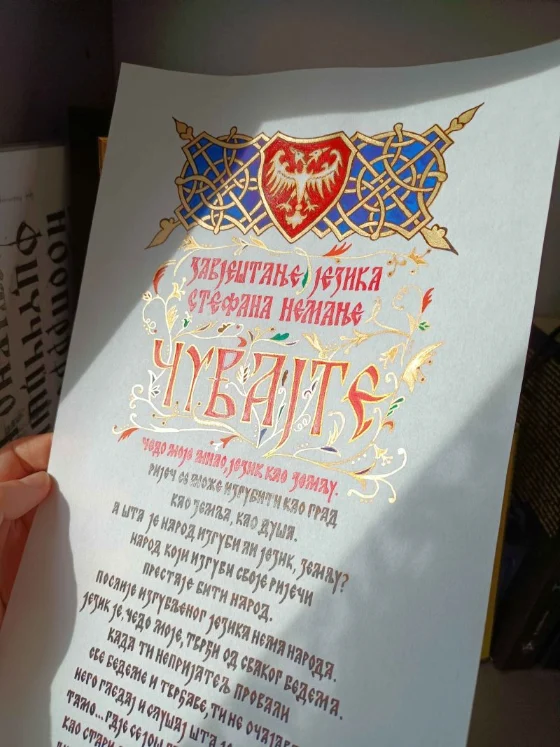 ЗАВЈЕШТАЊЕ ЈЕЗИКА
СТЕФАНА НЕМАЊЕ
ЧУВАЈТЕ
ЧЕДО МОЈЕ МИЛО, ЈЕЗИК КАО ЗЕМЉУ.
РИЈЕЧ СЕ МОЖЕ ИЗГУБИТИ КАО ГРАД
КАО ЗЕМЉА, КАО ДУША.
А ШТА ЈЕ НАРОД ИЗГУБИ ЛИ ЈЕЗИК, ЗЕМЉУ?
НАРОД КОЈИ ИЗГУБИ СВОЈЕ РИЈЕЧИ
ПРЕСТАЈЕ БИТИ НАРОД.
ПОСЛИЈЕ ИЗГУБЉЕНОГ ЈЕЗИКА НЕМА НАРОДА.
ЈЕЗИК ЈЕ, ЧЕДО МОЈЕ, ТВРЂИ ОД СВАКОГ БЕДЕМА.
КАДА ТИ НЕПРИЈАТЕЉ ПРОВАЛИ
СВЕ БЕДЕМЕ И ТВРЂАВЕ, ТИ НЕ
НЕГО ГЛЕДАЈ И СЛУШАЈ ШТА ЈЕ
ТАМО... ГДЈЕ СЕ ЈОШ
КАО СТАРИ